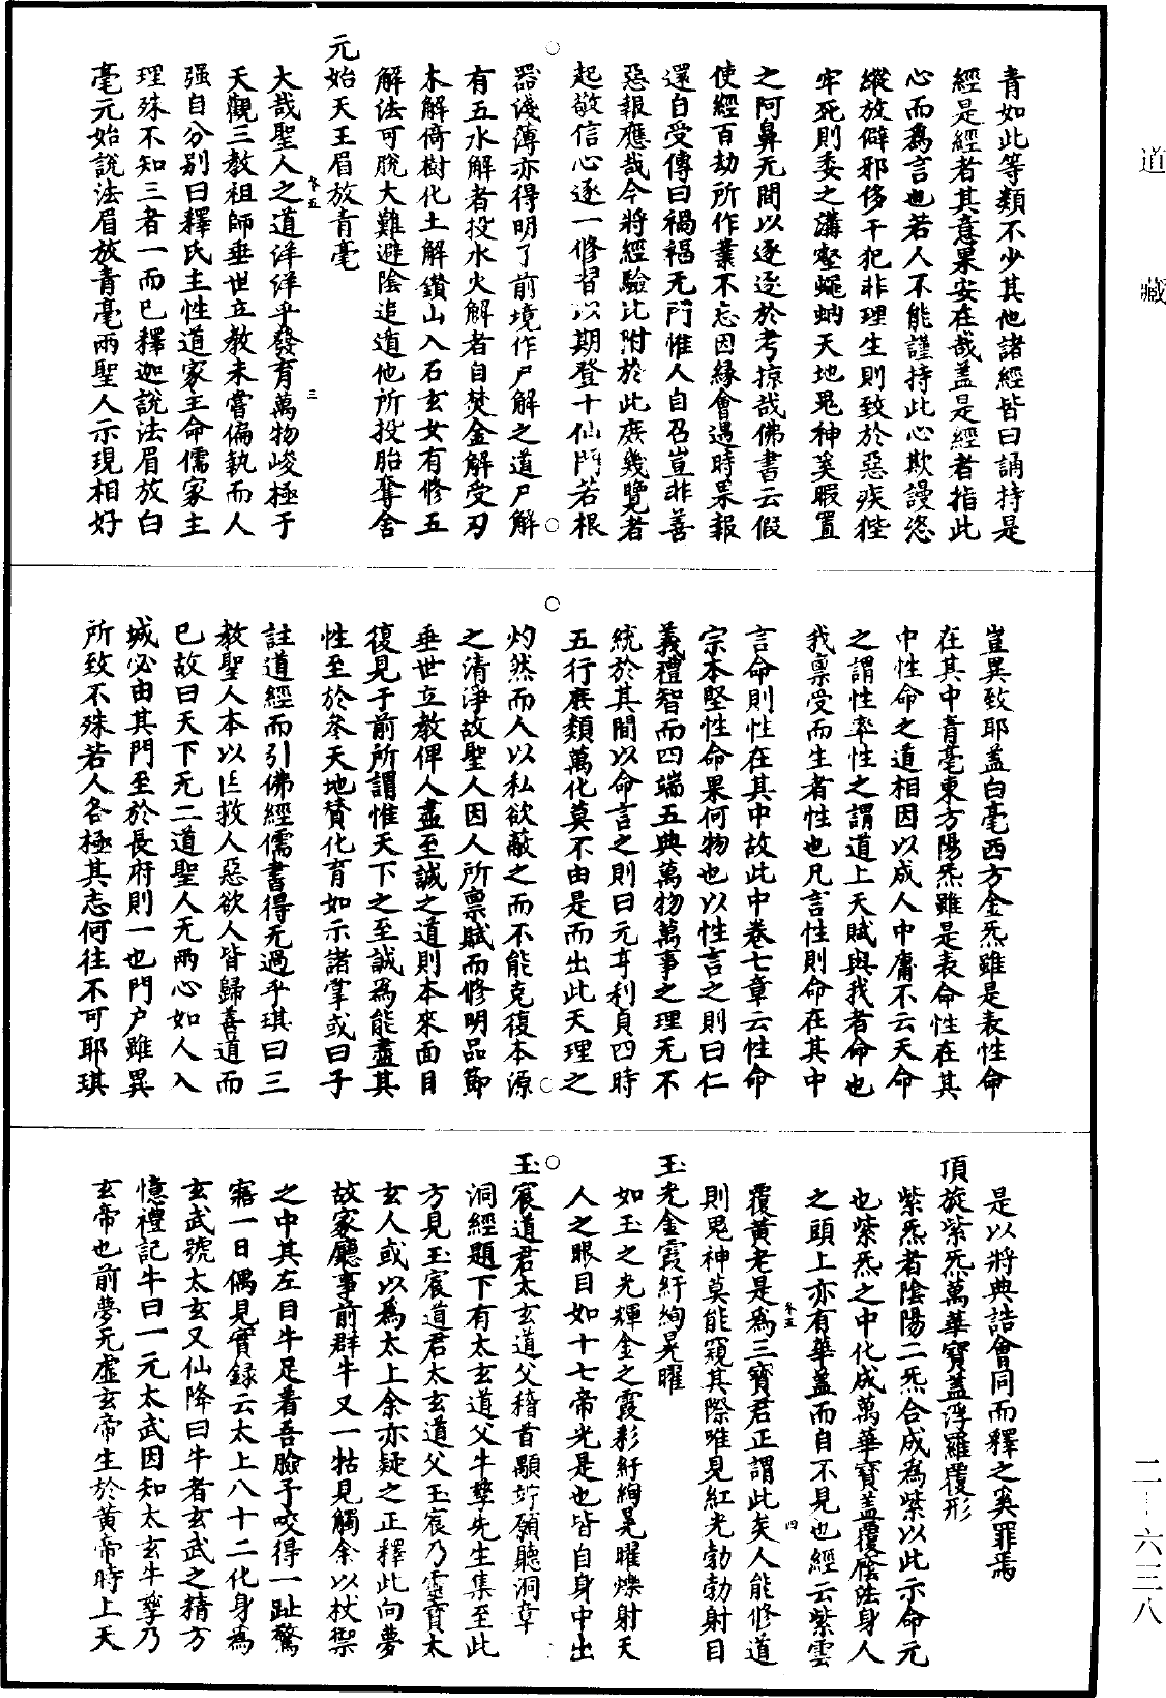 道藏
青如此等類不少其他諸經皆曰誦持是
經是經者其意果安在哉蓋是經者指此
心而為言也若人不能謹持此心欺謾恣
縱放僻邪侈干犯非理生則致於惡疾狴
牢死則委之溝壑蠅蚋天地鬼神奚暇置
之阿鼻无間以逐逐於考掠哉佛書云假
使經百劫所作業不忘因緣會遇時果報
還自受傳曰禍福无門惟人自召豈非善
惡報應哉今將經驗比附於此庶幾覽者
起敬信心逐一修習以期登十仙階若根
器淺薄亦得明了前境作尸解之道尸解
有五水解者投水火解者自焚金解受刃
木解倚樹化土解鑽山入石玄女有修五
解法可脫大難避陰追遁他所投胎奪舍
元始天王眉放青毫
大哉聖人之道洋洋乎發育萬物峻極于
天觀三教祖師垂世立教未嘗偏執而人
强自分別曰釋氏主性道家主命儒家主
理殊不知三者一而已釋迦說法眉放白
毫元始說法眉放青毫兩聖人示現相好
豈異致耶蓋白毫西方金炁雖是表性命
在其中青毫東方陽炁雖是表命性在其
中性命之道相因以成人中庸不云天命
之謂性率性之謂道上天賦與我者命也
我禀受而生者性也凡言性則命在其中
言命則性在其中故此中卷七章云性命
宗本堅性命果何物也以性言之則曰仁
義禮智而四端五典萬物萬事之理无不
統於其間以命言之則曰元亨利貞四時
五行庶類萬化莫不由是而出此天理之
灼然而人以私欲蔽之而不能克復本源
之清淨故聖人因人所禀賦而修明品節
垂世立教俾人盡至誠之道則本來面目
復見于前所謂惟天下之至誠為能盡其
性至於參天地贊化育如示諸掌或曰子
註道經而引佛經儒書得无過乎琪曰三
教聖人本以匡救人惡欲人皆歸善道而
已故曰天下无二道聖人无兩心如人入
城必由其門至於長府則一也門戶雖異
所致不殊若人各極其志何往不可耶琪
是以將典誥會同而釋之奚罪焉
頂旋紫炁萬華寶蓋浮羅覆形
紫炁者陰陽二炁合成為紫以此示命元
也紫炁之中化成萬華寶蓋覆蔭法身人
之頭上亦有華蓋而自不見也經云紫雲
覆黃老是為三寶君正謂此矣人能修道
則鬼神莫能窺其際唯見紅光勃勃射目
玉光金霞紆絢晃曜
如玉之光輝金之霞彩紆絢晃曜爍射天
人之眼目如十七帝光是也皆自身中出
玉宸道君太玄道父稽首顒竚願聽洞章
洞經題下有太玄道父牛孳先生集至此
方見玉宸道君太玄道父玉宸乃靈寶太
玄人或以為太上余亦疑之正釋此向夢
故家廳事前群牛又一牯見觸余以杖禦
之中其左目牛足著吾臉予咬得一趾驚
寤一日偶見實録云太上八十二化身為
玄武號太玄又仙降曰牛者玄武之精方
憶禮記牛曰一元太武因知太玄牛孳乃
玄帝也前夢无虛玄帝生於黃帝時上天
二－六三八